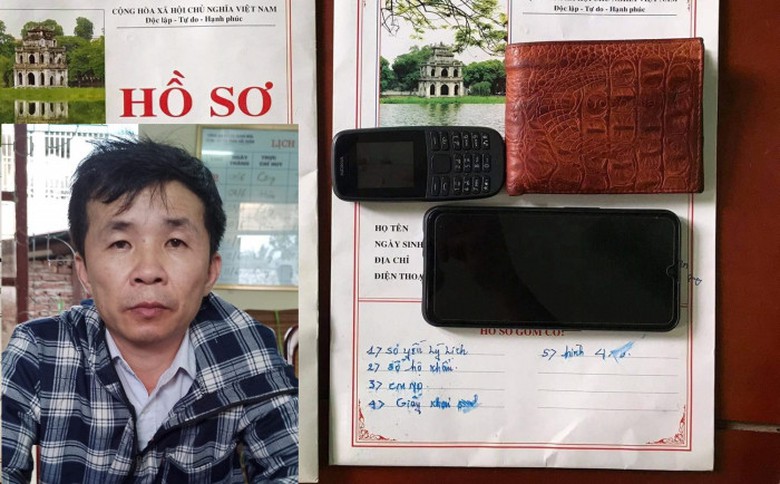 CỘNG HÒA XÃ HỘI CHỦ NGHĨA VIỆT NAM
Độc lập - Tự do - Hạnh phúc
HỒ SƠ
LỊCH
NGÀY
TRỰC
NGHĨA VIỆT NAM
Hạnh phúc
NOKIA
HỌ TÊN
NGÀY SINH
ĐỊA CHỈ
ĐIỆN THOẠI
HỒ SƠ GỒM CÓ:
1> Sơ yếu lý lịch
2> Sổ hộ khẩu
3>
4> Giấy khai
5> hình 4